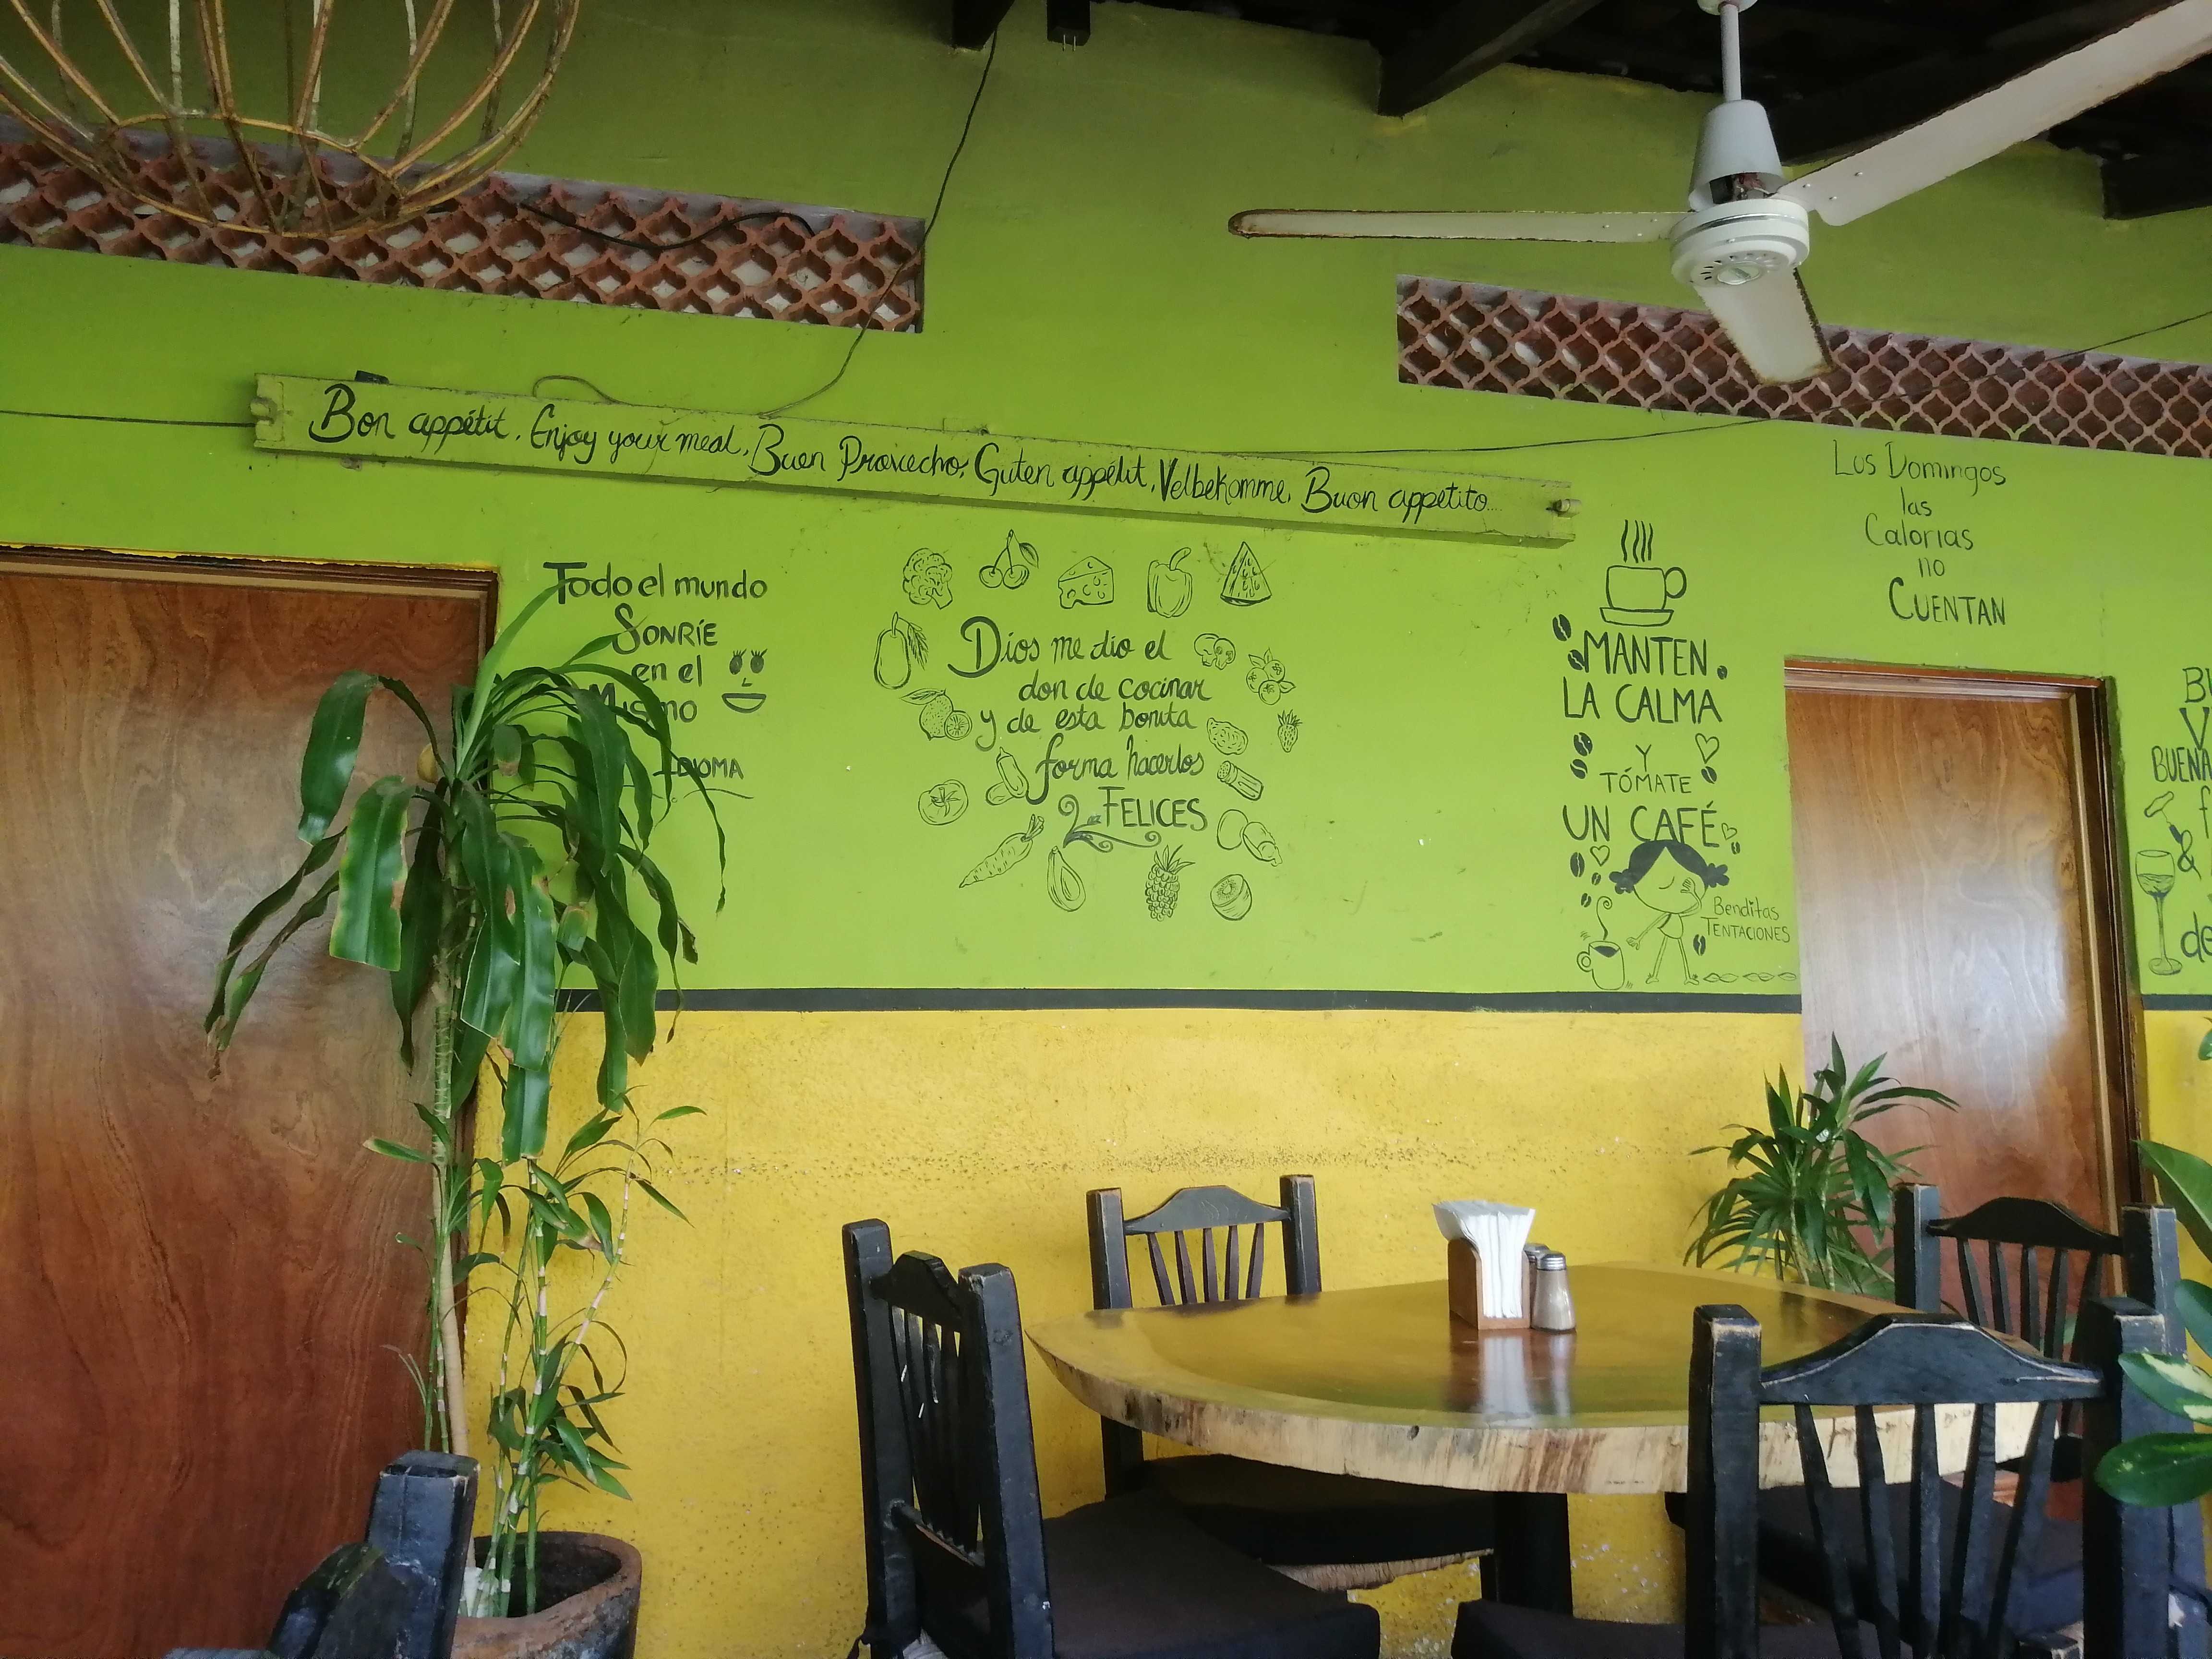 Bon appétit, Enjoy your meal, Buen Provecho, Guten appétit, Velbekomme, Buon appetito....
Todo el mundo
SONRÍE
en el
Mismo
IDIOMA
Dios me dio el
don de cocinar
y de esta bonita
forma hacerlos
FELICES
MANTEN
LA CALMA
Y
TÓMATE
UN CAFÉ
Benditas
TENTACIONES
Los Domingos
las
Calorias
no
CUENTAN
BUENA
&
de